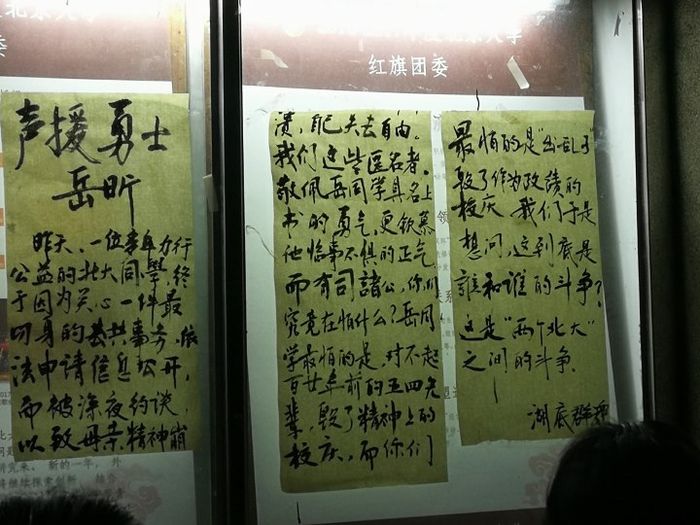 声援勇士
岳昕
昨天，一位多年力行
公益的北大同學，终
于因为关心一件最
切身的公共事务，依
法申请信息公开，
而被深夜约谈，
以致母亲精神崩
溃，自己失去自由。
我们这些匿名者，
敬佩岳同学具名上
书的勇气，更钦慕
他临事不惧的正气，
而有司諸公，你们
究竟在怕什么？岳同
学最怕的是，对不起
百廿年前的五四先
辈，毁了精神上的
校庆，而你们
最怕的是“出乱子”
毁了作为政绩的
校庆。我们于是
想问，这到底是
誰和谁的斗争？
这是“两个北大”
之间的斗争。
湖底群
红旗团委